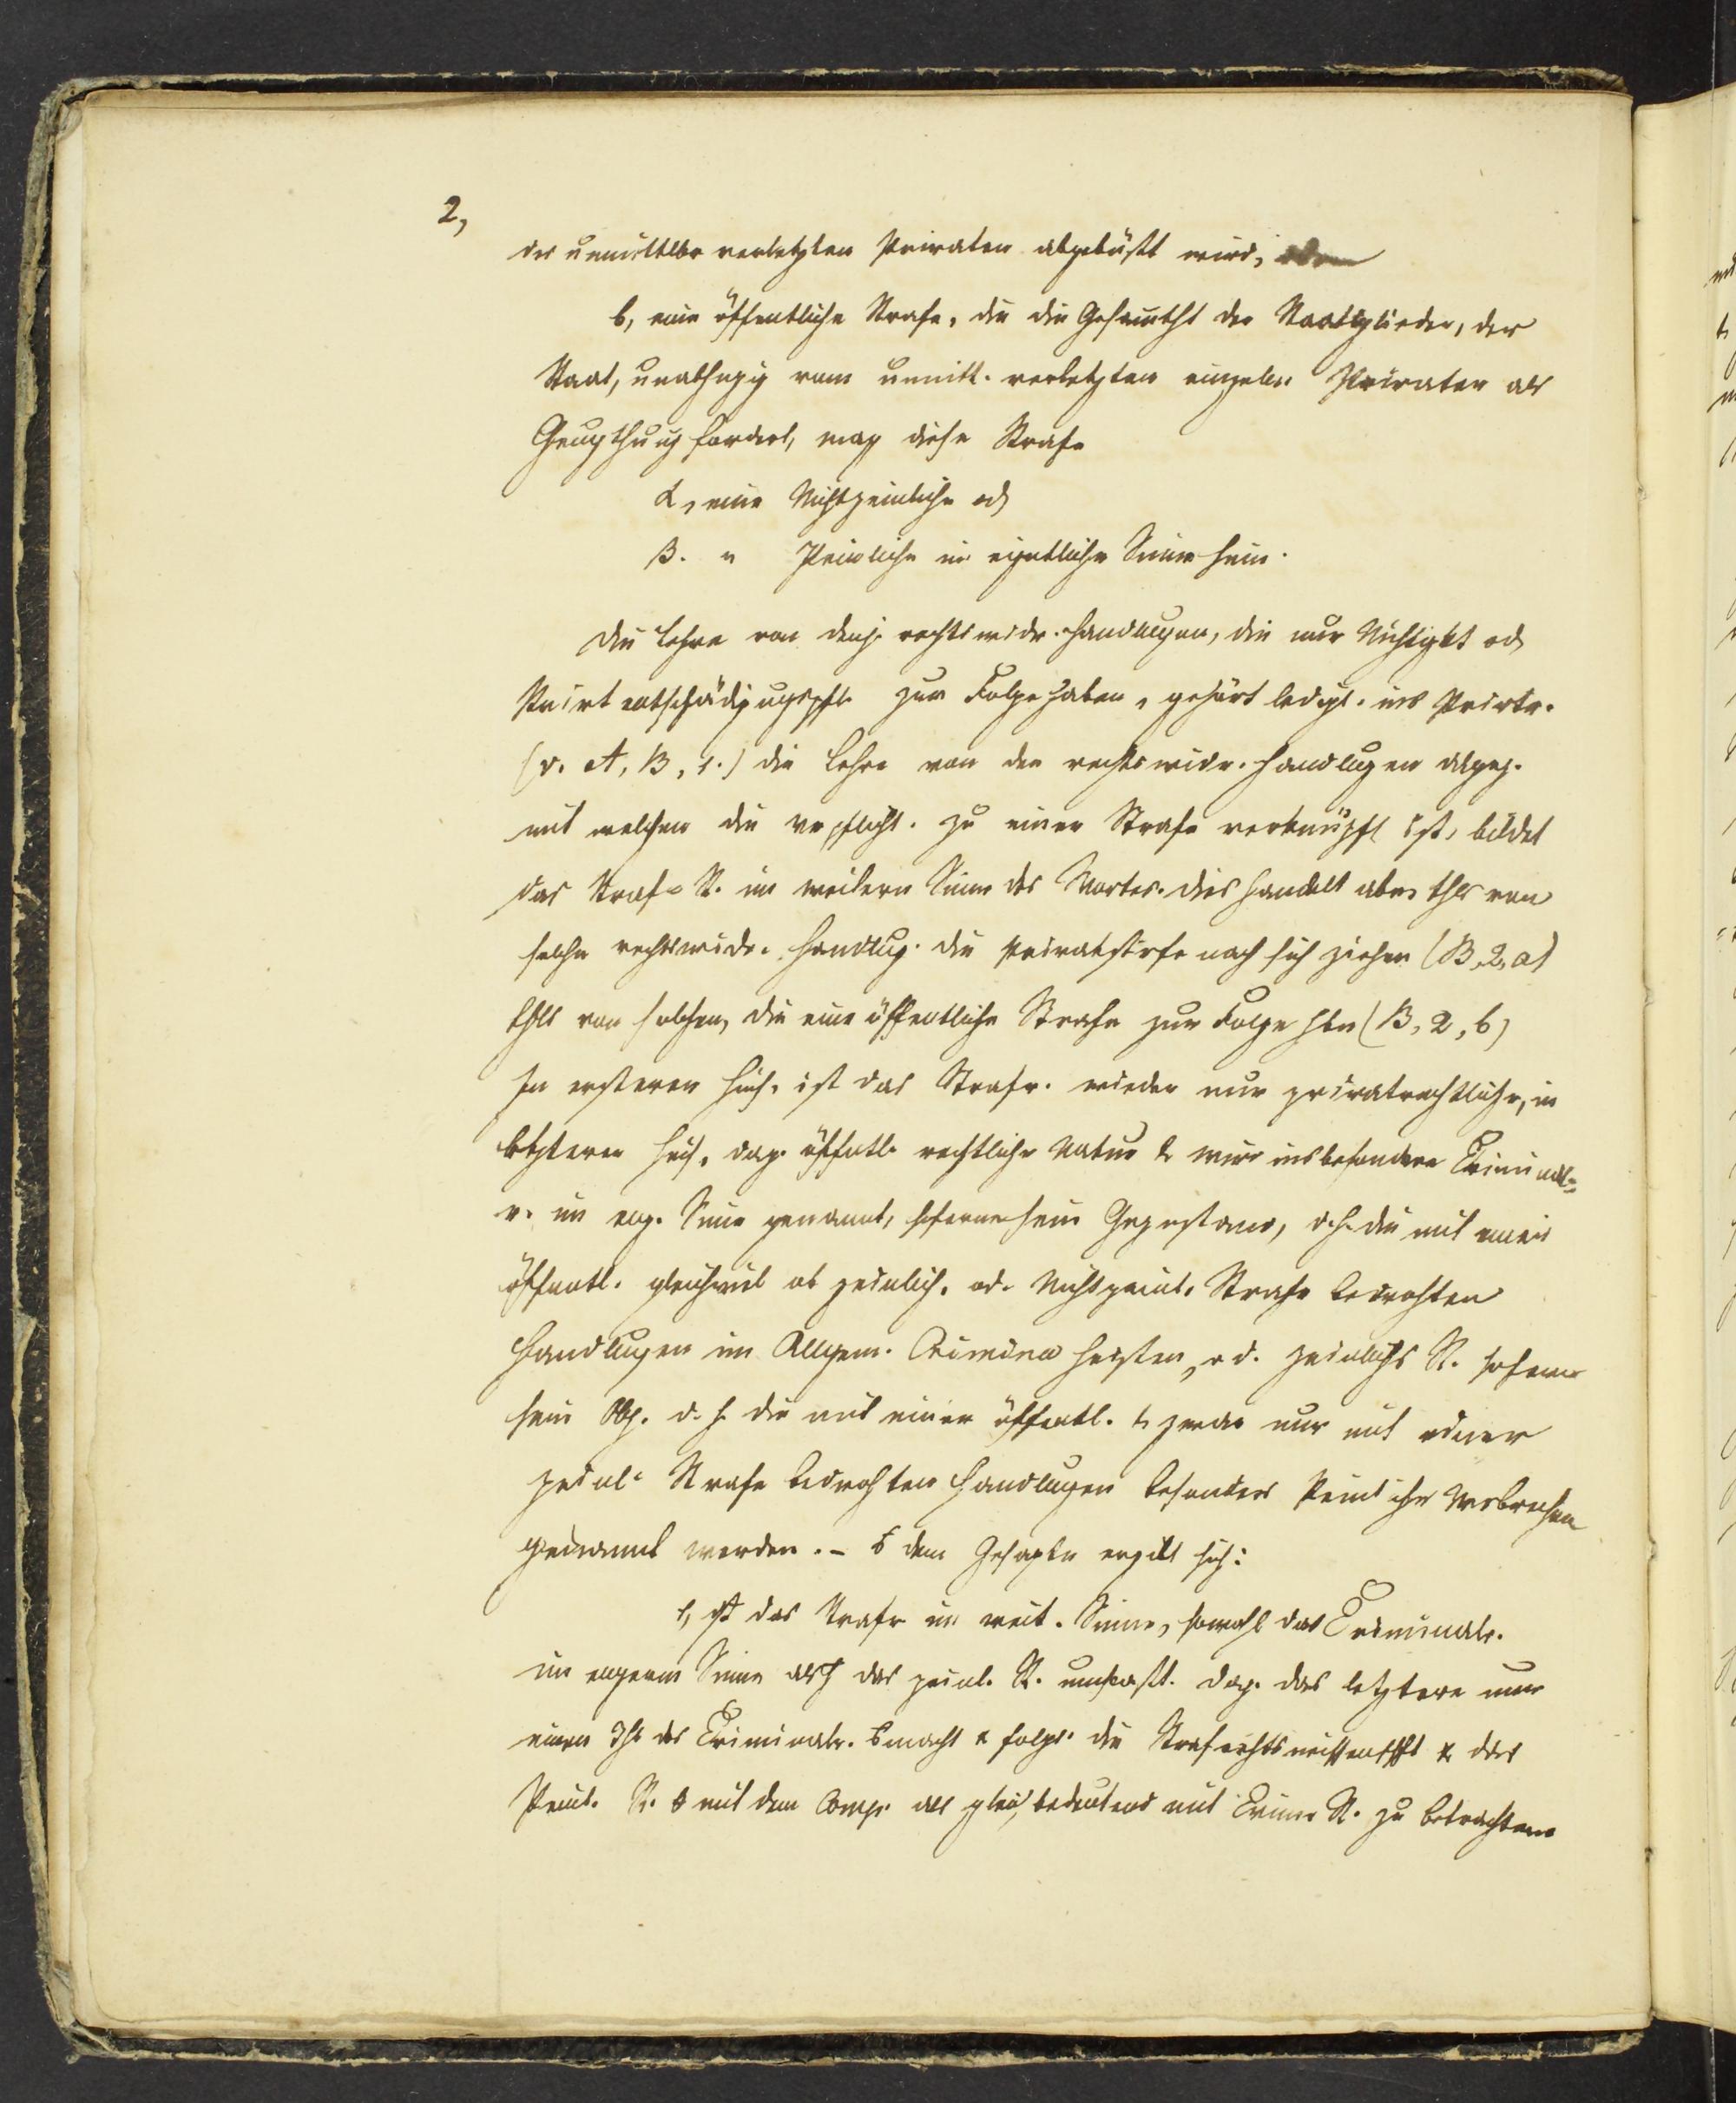 2,
der unmittelbr verletzten Privaten abgebüßt wird,
b, eine öffentliche Strafe, die die Gesammtht der Staatsglieder, der
Staat, unabhngig vom unmitt. verletzten einzelnen Privaten als
Gnugthuung fordert, mag diese Strafe
α, eine Nichtpeinliche od
β. " Peinliche im eigentlichen Sinne sein.
Die Lehre von denj. rechtswidr. Handlungen, die nur Nichtigkt od
Privtentschädigungspfl. zur Folge haben, gehört ledigl. ins Privtr.
(v. A, B, 1.) die Lehre von den rechtswidr. Handlungen dageg.
mit welchen die Verpflicht. zu einer Strafe verknüpft ist, bildet
das Straf-R. im weitern Sinne des Wortes. Dies handelt aber thls von
solchen rechtswidr. Handlug. die Privatstrfe nach sich ziehen (B, 2, a)
thls von solchen, die eine öffentliche Strafe zur Folge hbn (B, 2, b)
In ersterer Hins. ist das Strafr. wieder nur privatrechtlicher, in
letzterer Hins. dag. öffentl. rechtlicher Natur & wird insbesondere Criminal-
r. im eng. Sinne genannt, soferne sein Gegenstand, d. h. die mit einer
öffentl. gleichviel ob peinlich. od. Nichtpeinl. Strafe bedrohten
Handlungen im Allgem. Crimina heißen, od. peinliches R. soferne
sein Obj. d. h. die mit einer öffentl. & zwar nur mit einer
peinl. Strafe bedrohten Handlungen besonders Peinliche Verbrechen
genannt werden. – dem Gesagten ergibt sich:
1, daß das Strafr im weit. Sinne, sowohl das Criminalr.
im engern Sinne als das peinl. R. umfaßt. dag. das letztere nur
einen Thl des Criminalr. macht & folgl. die Strafrechtswissenschft & das
Peinl. R. mit dem Comp. als gleichbedeutend mit Crimin R. zu betrachten